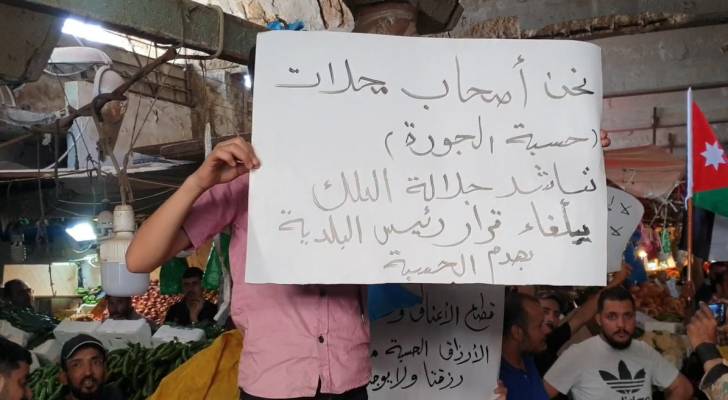 نحن أصحاب محلات
(حسبة الجورة)
نناشد جلالة الملك
بإلغاء قرار رئيس البلدية
بهدم الحسبة
قطع الأعناق و
الأرزاق الحسبة م
رزقنا ولا يوجد
adidas